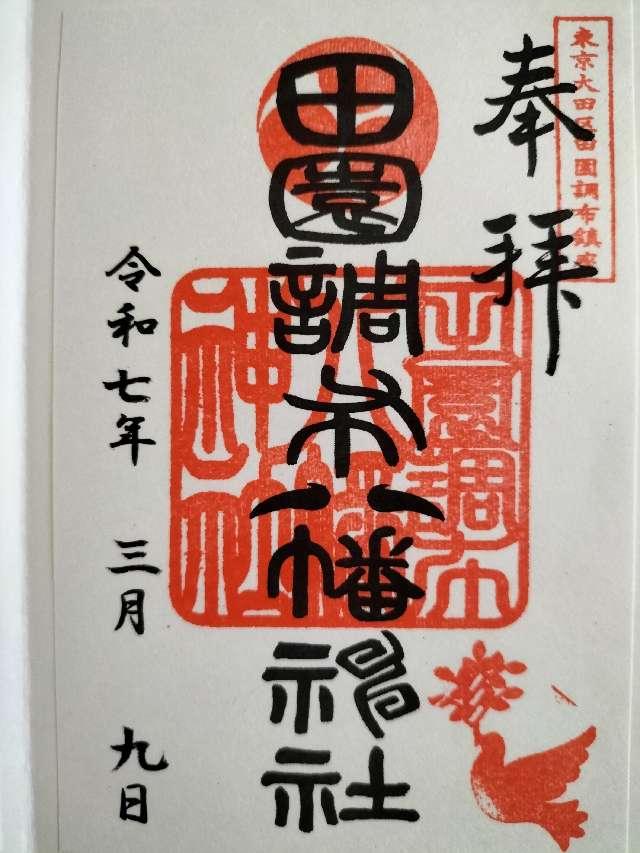 東京大田区田園調布鎮座
奉拝
田園調布八幡神社
田園調布八幡神社
令和七年 三月 九日